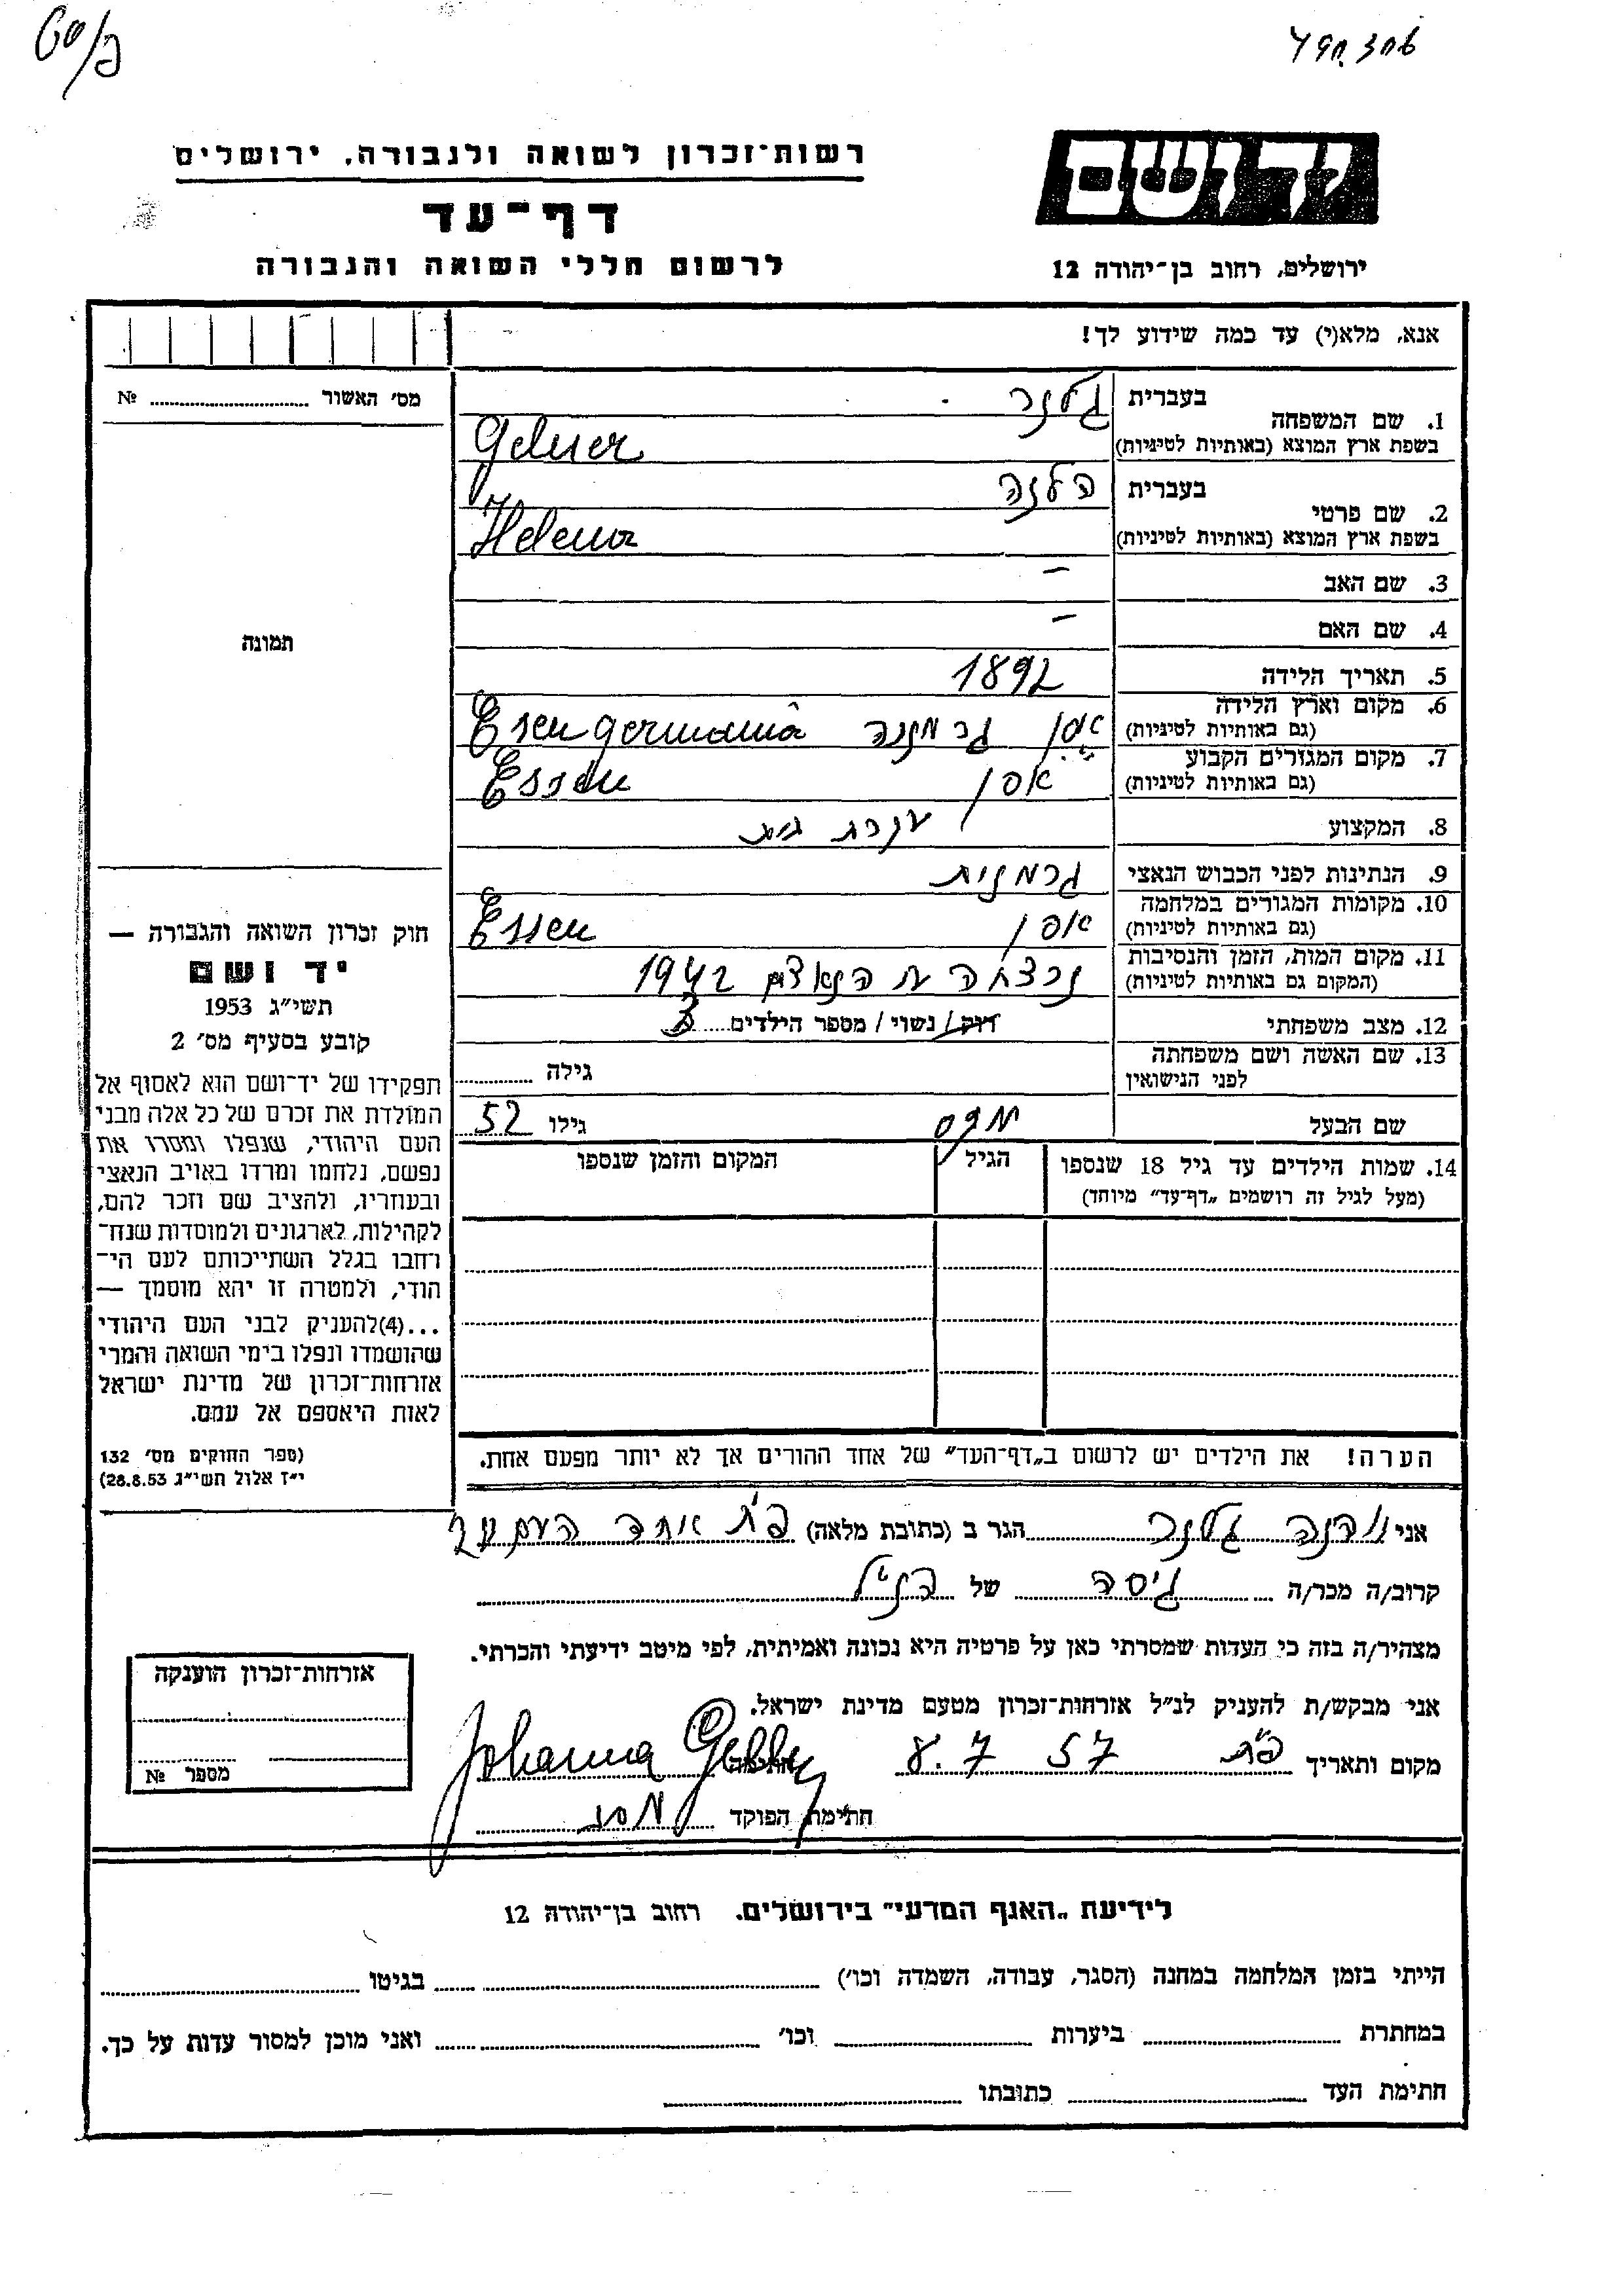 ידושם
רשות־זכרון לשואה ולגבורה, ירושלים
דף־עד
ירושלים, רחוב בן־יהודה 12
לרשום חללי השואה והגבורה
אנא, מלא(י) עד כמה שידוע לך!
מס׳ האשור № 
1. שם המשפחה
בעברית גלנר
בשפת ארץ המוצא (באותיות לטיניות) Gelner
2. שם פרטי
בעברית הלנה
בשפת ארץ המוצא (באותיות לטיניות) Helena
3. שם האב –
4. שם האם –
תמונה
5. תאריך הלידה 1892
6. מקום וארץ הלידה
(גם באותיות לטיניות) אסן גרמניה Esen germania
7. מקום המגורים הקבוע
(גם באותיות לטיניות) אסן Essen
8. המקצוע עקרת בית
9. הנתינות לפני הכבוש הנאצי גרמנית
10. מקומות המגורים במלחמה
(גם באותיות לטיניות) אסן Essen
11. מקום המות, הזמן והנסיבות
(המקום גם באותיות לטיניות) נרצחה ע הנאצים 1942
12. מצב משפחתי רוק/ נשוי / מספר הילדים 3
13. שם האשה ושם משפחתה
לפני הנישואין גילה
שם הבעל מקס גילו 52
14. שמות הילדים עד גיל 18 שנספו
(מעל לגיל זה רושמים „דף־עד״ מיוחד)
הגיל
המקום והזמן שנספו
חוק זכרון השואה והגבורה —
יד ושם
תשי״ג 1953
קובע בסעיף מס׳ 2
תפקידו של יד־ושם הוא לאסוף אל
המולדת את זכרם של כל אלה מבני
העם היהודי, שנפלו ומסרו את
נפשם, נלחמו ומרדו באויב הנאצי
ובעוזריו, ולהציב שם וזכר להם,
לקהילות, לארגונים ולמוסדות שנח־
רחבו בגלל השתייכותם לעם הי־
הודי, ולמטרה זו יהא מוסמך —
...(4)להעניק לבני העם היהודי
שהושמדו ונפלו בימי השואה והמרי
אזרחות־זכרון של מדינת ישראל
לאות היאספם אל עמם.
(ספר החוקים מס׳ 132
י״ז אלול תשי״ג 28.8.53)
הערה! את הילדים יש לרשום ב„דף־העד״ של אחד ההורים אך לא יותר מפעם אחת.
אני יוהנה גלנר הגר ב (כתובת מלאה) פ״ת אחד העם
קרוב/ה מכר/ה גיסה של הנ״ל
מצהיר/ה בזה כי העדות שמסרתי כאן על פרטיה היא נכונה ואמיתית, לפי מיטב ידיעתי והכרתי.
אני מבקש/ת להעניק לנ״ל אזרחות־זכרון מטעם מדינת ישראל.
מקום ותאריך פ״ת 8.7 57 חתימה Johanna
חתימת הפוקד
אזרחות־זכרון הוענקה
מספר №
לידיעת „האגף המדעי״ בירושלים, רחוב בן־יהודה 12
הייתי בזמן המלחמה במחנה (הסגר, עבודה, השמדה וכו׳) בגיטו
במחתרת ביערות וכו׳ ואני מוכן למסור עדות על כך.
חתימת העד כתובתו